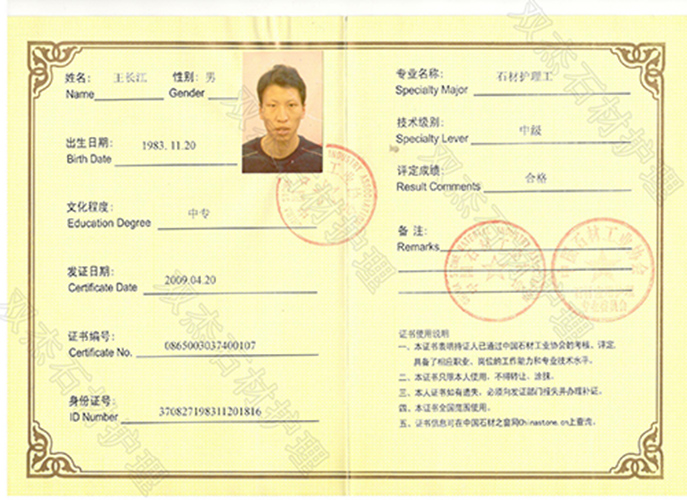 姓名： 王长江 性别： 男
Name Gender
出生日期： 1983.11.20
Birth Date
文化程度： 中专
Education Degree
发证日期： 2009.04.20
Certificate Date
证书编号： 0865003037400107
Certificate No.
身份证号： 370827198311201816
ID Number
专业名称： 石材护理工
Specialty Major
技术级别： 中级
Specialty Lever
评定成绩： 合格
Result Comments
备 注：
Remarks
证书使用说明
一、本证书表明持证人已通过中国石材工业协会的考核、评定，
具备了相应职业、岗位的工作能力和专业技术水平。
二、本证书只限本人使用，不得转让、涂抹。
三、本人证书如有遗失，必须向发证部门报失并办理补证。
四、本证书全国范围使用。
五、证书信息可在中国石材之窗网Chinastone.cn上查询。
双杰石材护理
双杰石材护理
双杰石材护理